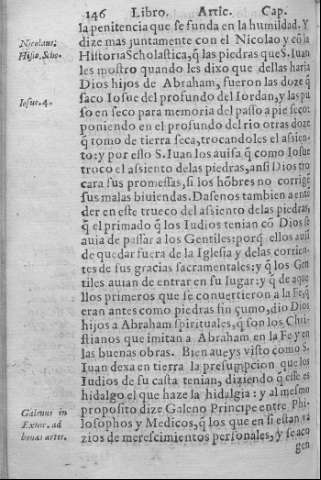 146 Libro. Artic. Cap.
la penitencia que se funda en la humildad. Y
Nicolaus; dize mas juntamente con el Nicolao y cõ la
Histo. Scho. Historia Scholastica, q̃ las piedras que S. Iuan
les mostro quando les dixo que dellas haria
Dios hijos de Abraham, fueron las doze q̃
Iosue. 4. saco Iosue del profundo del Iordan, y las pu
so en seco para memoria del passo a pie seco:
poniendo en el profundo del rio otras doze
q̃ tomo de tierra seca, trocandoles el assien-
to: y por esso S. Iuan los auisa q̃ como Iosue
troco el assiento de las piedras, ansi Dios tro
cara sus promessas, si los hõbres no corrigẽ
sus malas biuiendas. Dasenos tambien a entẽ
der en este trueco del assiento de las piedras,
q̃ el primado q̃ los Iudios tenian cõ Dios se
auia de passar a los Gentiles: porq̃ ellos auiã
de quedar fuera de la Iglesia y delas corrien-
tes de sus gracias sacramentales: y q̃ los Gen
tiles auian de entrar en su lugar: y q̃ de aque
llos primeros que se conuertieron a la Fe, q̃
eran antes como piedras sin çumo, dio Dios
hijos a Abraham spirituales, q̃ son los Chri-
stianos que imitan a Abraham en la Fe y en
las buenas obras. Bien aueys visto como S.
Iuan dexa en tierra la presumpcion que los
Iudios de su casta tenian, diziendo q̃ esse es
hidalgo el que haze la hidalgia: y al mesmo
Galenus in proposito dize Galeno Principe entre Phi-
Exhor. ad losophos y Medicos, q̃ los que en si estan va
bonas artes. zios de merescimientos personales, y se aco
gen